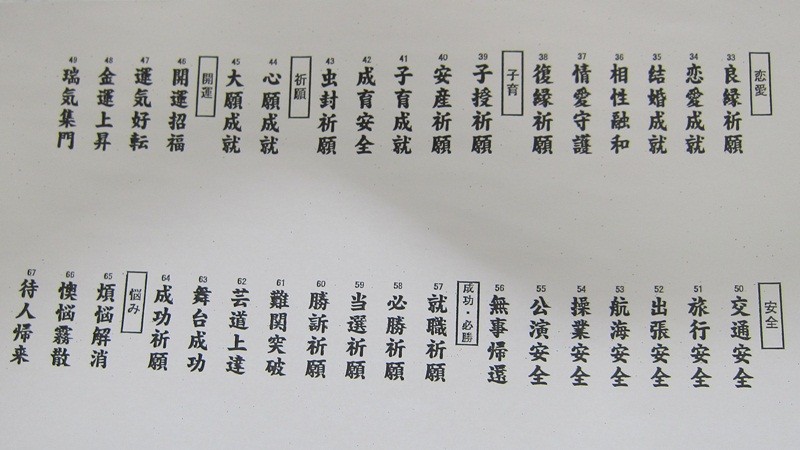 恋愛
33 良縁祈願
34 恋愛成就
35 結婚成就
36 相性融和
37 情愛守護
38 復縁祈願
子育
39 子授祈願
40 安産祈願
41 子育成就
42 成育安全
43 虫封祈願
祈願
44 心願成就
45 大願成就
開運
46 開運招福
47 運気好転
48 金運上昇
49 瑞気集門
安全
50 交通安全
51 旅行安全
52 出張安全
53 航海安全
54 操業安全
55 公演安全
56 無事帰還
成功・必勝
57 就職祈願
58 必勝祈願
59 当選祈願
60 勝訴祈願
61 難関突破
62 芸道上達
63 舞台成功
64 成功祈願
悩み
65 煩悩解消
66 懊悩霧散
67 待人帰来